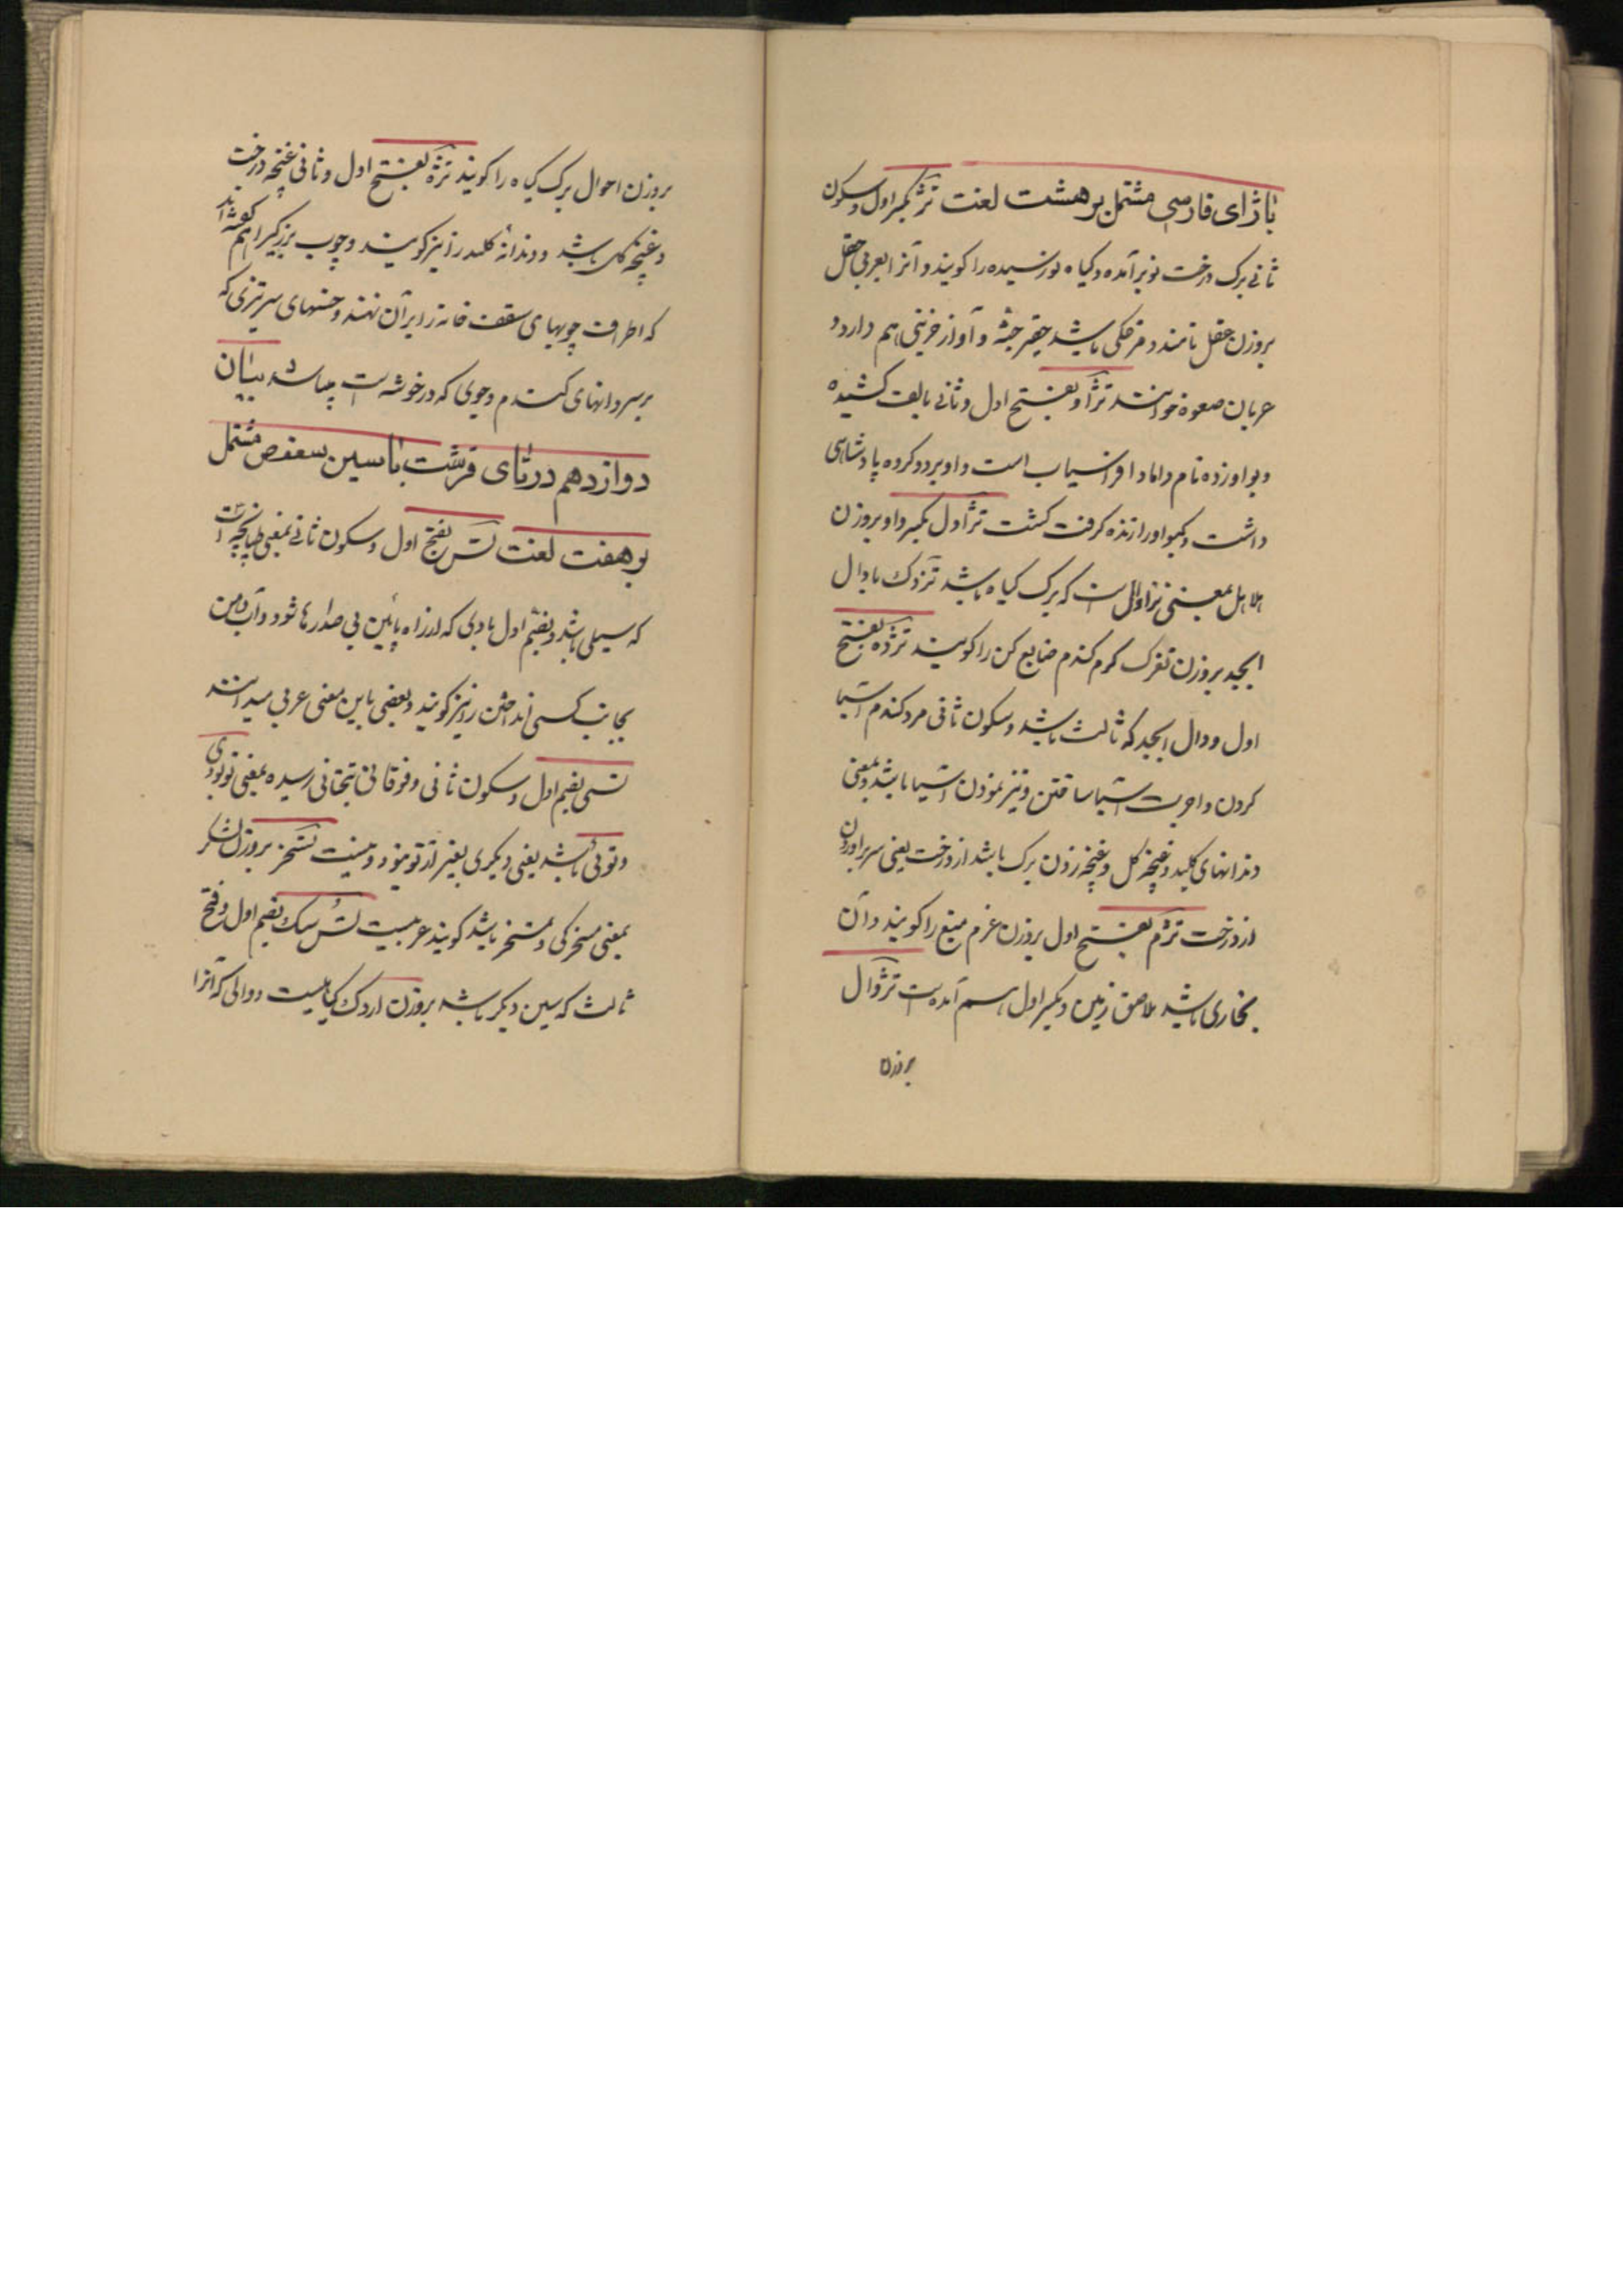 با ژای فارسی مشتمل بر هشت لغت تژ بکسر اول و سکون
ثانی برک درخت نو برآمده و کیاه نو رسیده را کویند و آنرا بعربی حقل
بروزن عقل نامند و مرغکی باشد حقیر جثه و آواز حزینی هم دارد و
عربان صعوه خوانند تژاو بفتح اول و ثانی بالف کشیده
و بواو زده نام داماد افراسیاب است و او بر دو کروه پادشاهی
داشت و کیو او را زنده کرفت کشت تژاول بکسر واو بروزن
هلاهل بمعنی تژاول است که برک کیاه باشد تژدک با دال
ابجد بروزن تفرک کرم کندم ضایع کن را کویند تژده بفتح
اول و دال ابجد که ثالث باشد و سکون ثانی مرد کندم آسیا
کردن و اجرت آسیا ساختن و تیز نمودن آسیا باشد و بمعنی
دندانهای کلید و غنچه کل و غنچه زدن برک باشد از درخت یعنی سر براوردن
از درخت تژم بفتح اول بروزن عزم میغ را کویند و آن
بخاری باشد ملاصق زمین و بکسر اول هم آمده است تژوال
بروزن
بروزن احوال برک کیاه را کویند تژه بفتح اول و ثانی غنچه درخت
و غنچه کل باشد و دندانه کلید را نیز کویند و چوب بزرکیرا هم کفته اند
که اطراف چوبهای سقف خانه را بران نهند و خسهای سر تیزی که
بر سر دانهای کندم و جوی که در خوشه است میباشد بیان
دوازدهم در تای قرشت با سین سعفص مشتمل
بر هفت لغت تس بفتح اول و سکون ثانی بمعنی طپانچه است
که سیلی باشد و بضم اول بادی که از راه پائین بی صدا رها شود و آب دهن
بجانب کسی انداختن را نیز کویند و بعضی باین معنی عربی میدانند
تستی بضم اول و سکون ثانی و فوقانی بتحتانی رسیده بمعنی تو بودی
و توئی باشد یعنی دیکری بغیر از تو نبود و نیست تسخر بروزن لشکر
بمعنی مسخرکی و تمسخر باشد کویند عربیست تس سک بضم اول و فتح
ثالث که سین دیکر باشد بروزن اردک کیاهیست دوائی که آنرا